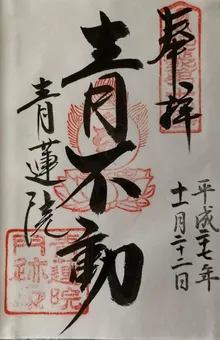 奉拝
平成二十七年
十一月二十二日
青不動
青蓮院
青蓮院
門跡